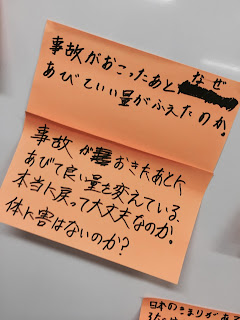 事故がおこったあとなぜ
あびていい量がふえたのか。
事故がおきたあとに
あびて良い量を変えている。
本当に戻って大丈夫なのか。
体に害はないのか?
日本のきまりがある